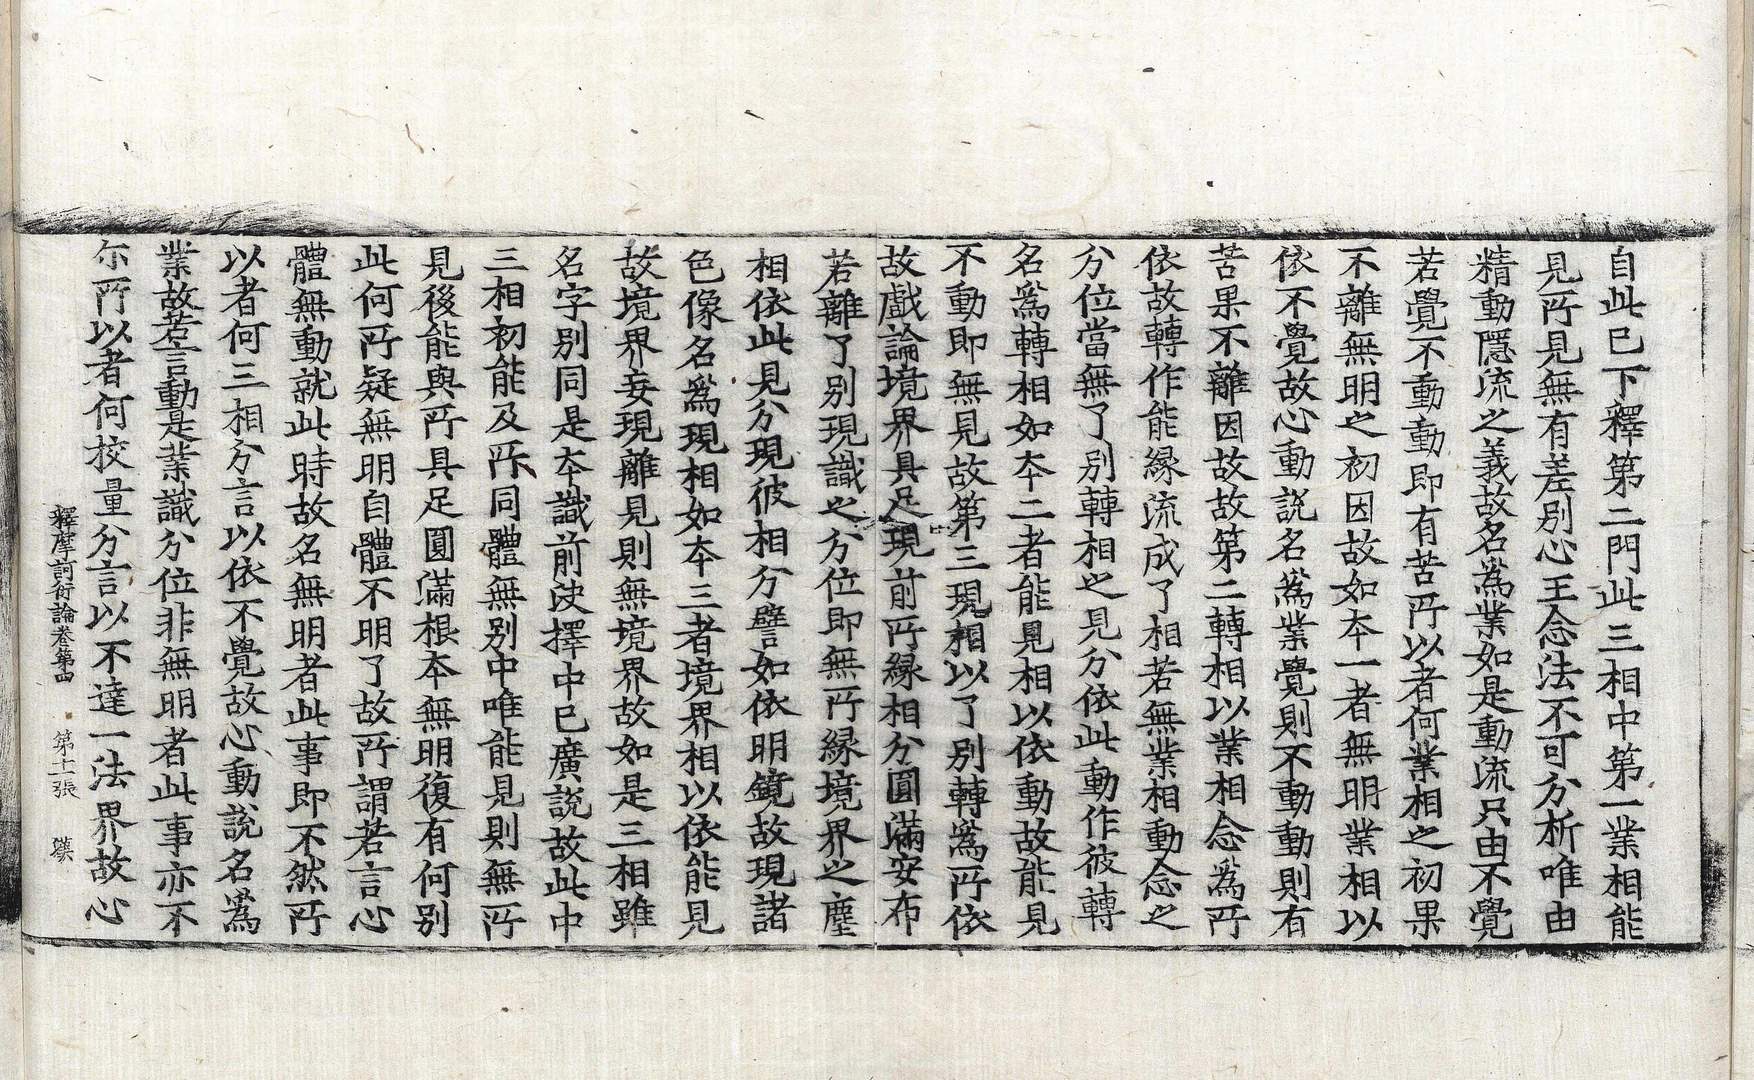 自此已下釋第二門此三相中第一業相能
見所見無有差別心王念法不可分析唯由
精動隱流之義故名爲業如是動流只由不覺
若覺不動動即有苦所以者何業相之初果
不離無明之初因故如本一者無明業相以
依不覺故心動説名爲業覺則不動動則有
苦果不離因故故第二轉相以業相念爲所
依故轉作能緣流成了相若無業相動念之
分位當無了別轉相之見分依此動作彼轉
名爲轉相如本二者能見相以依動故能見
不動即無見故第三現相以了別轉爲所依
故戲論境界具足現前所緣相分圓滿安布
若離了別現識之分位即無所緣境界之塵
相依此見分現彼相分譬如依明鏡故現諸
色像名爲現相如本三者境界相以依能見
故境界妄現離見則無境界故如是三相雖
名字別同是本識前決擇中已廣説故此中
三相初能及所同體無別中唯能見則無所
見後能與所具足圓滿根本無明復有何別
此何所疑無明自體不明了故所謂若言心
體無動就此時故名無明者此事即不然所
以者何三相分言以依不覺故心動説名爲
業故若言動是業識分位非無明者此事亦不
尒所以者何校量分言以不達一法界故心
釋摩訶衍論卷第四 第十一張 漢